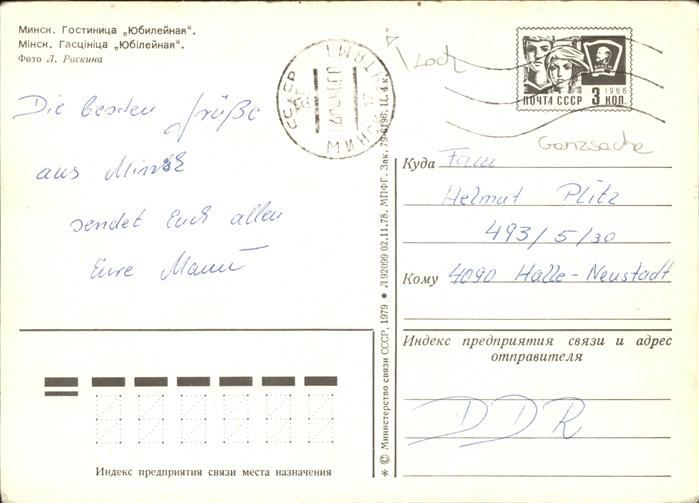 Минск. Гостиница „Юбилейная“.
Мінск. Гасцініца „Юбілейная“.
Фото Л. Раскина
Die besten Grüße
aus Minsk
sendet Euch allen
Eure
СССР
МИНСК
Loch
1966
ПОЧТА СССР 3 КОП.
Ganzsache
Куда Fam
Helmut Plitz
493/5/30
Кому 4090 Halle-Neustadt
Индекс предприятия связи и адрес
отправителя
DDR
Индекс предприятия связи места назначения
* © Министерство связи СССР, 1979 ● Л 92099 02.11.78. МПФГ. Зак. 79-6196. Ц. 4 к.